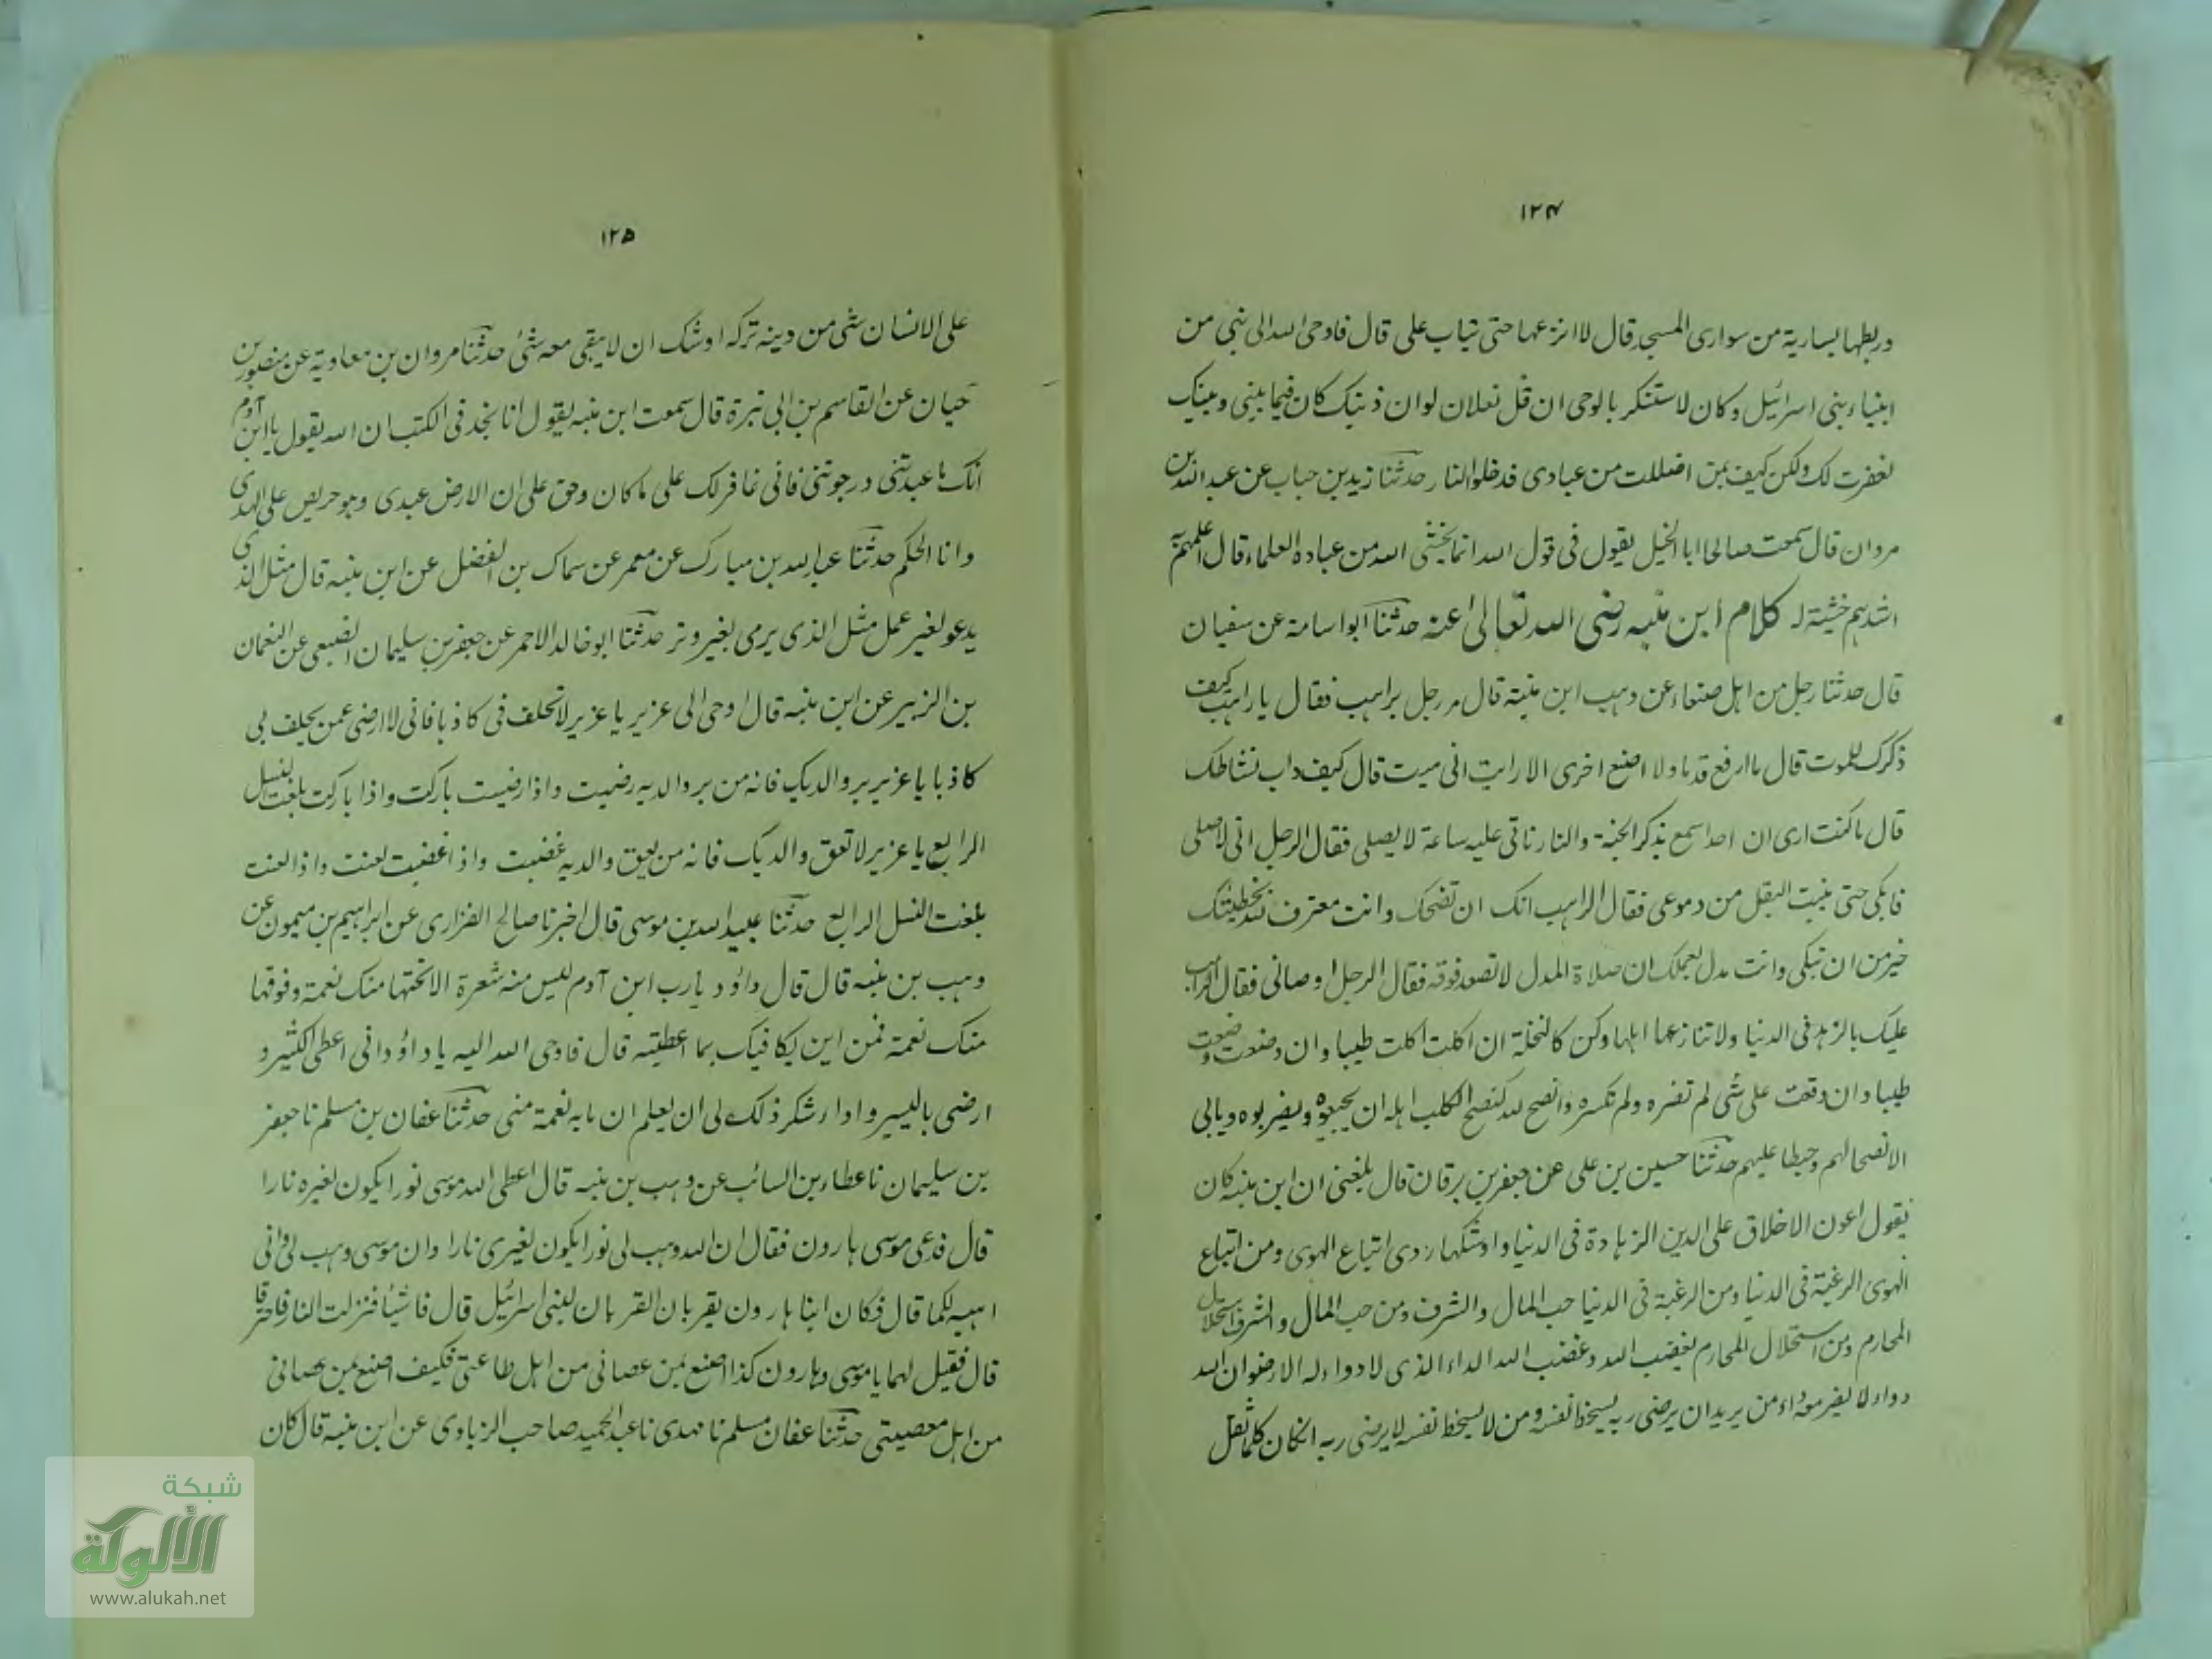 ١٢٤
وربطها بسارية من سواری المسجد قال لا انزعها حتی یتاب علی قال فاوحی الله الی نبی من
انبیاء بنی اسرائیل وکان لا یستنکر بالوحی ان قل لفلان لو ان ذنبک کان فیما بینی وبینک
لغفرت لک ولکن کیف بمن اضللت من عبادی فدخلوا النار حدثنا زید بن حباب عن عبد الله بن
مروان قال سمعت صالحا ابا الخیل یقول فی قول الله انما یخشی الله من عباده العلماء قال اعلمهم به
اشدهم خشیة له کلام ابن منبه رضی الله تعالی عنه حدثنا ابو اسامة عن سفیان
قال حدثنا رجل من اهل صنعاء عن وهب ابن منبه قال مر رجل براهب فقال یا راهب کیف
ذکرک للموت قال ما ارفع قدما ولا اضع اخری الا رایت انی میت قال کیف داب نشاطک
قال ما کنت اری ان احدا سمع بذکر الجنة والنار تاتی علیه ساعة لا یصلی فقال الرجل انی لاصلی
فابکی حتی ینبت البقل من دموعی فقال الراهب انک ان تضحک وانت معترف لله بخطیئتک
خیر من ان تبکی وانت مدل بعملک ان صلاة المدل لا تصعد فوقه فقال الرجل اوصانی فقال الراهب
علیک بالزهد فی الدنیا ولا تنازعها اهلها وکن کالنحلة ان اکلت اکلت طیبا وان وضعت وضعت
طیبا وان وقعت علی شی لم تضره ولم تکسره وانصح لله کنصح الکلب اهله ان یجیعوه ویضربوه ویابی
الا نصحا لهم وحیطا علیهم حدثنا حسین بن علی عن جعفر بن برقان قال بلغنی ان ابن منبه کان
یقول اعون الاخلاق علی الدین الزهادة فی الدنیا واوشکها ردی اتباع الهوی ومن اتباع
الهوی الرغبة فی الدنیا ومن الرغبة فی الدنیا حب المال والشرف ومن حب المال والشرف استحلال
المحارم ومن استحلال المحارم یغضب الله وغضب الله الداء الذی لا دواء له الا رضوان الله
دواء لا یضر معه داء من یرید ان یرضی ربه یسخط نفسه ومن لا یسخط نفسه لا یرضی ربه ان کان کلما ثقل
١٢٥
علی الانسان شی من دینه ترکه اوشک ان لا یبقی معه شئ حدثنا مروان بن معاویة عن منصور بن
حیان عن القاسم بن ابی نبزة قال سمعت ابن منبه یقول انا نجد فی الکتب ان الله یقول یا ابن آدم
انک ما عبدتنی ورجوتنی فانی غافر لک علی ما کان وحق علی ان الارض عبدی وهو حریص علی الهدی
وانا الحکم حدثنا عبد الله بن مبارک عن معمر عن سماک بن الفضل عن ابن منبه قال مثل الذی
یدعو لغیر عمل مثل الذی یرمی بغیر وتر حدثنا ابو خالد الاحمر عن جعفر بن سلیمان الضبعی عن النعمان
بن الزبیر عن ابن منبه قال اوحی الی عزیر یا عزیر لا تحلف فی کاذبا فانی لا ارضی عمن یحلف بی
کاذبا یا عزیر بر والدیک فانه من بر والدیه رضیت واذا رضیت بارکت واذا بارکت بلغت النسل
الرابع یا عزیر لا تعق والدیک فانه من یعق والدیه غضبت واذا غضبت لعنت واذا لعنت
بلغت النسل الرابع حدثنا عبید الله بن موسی قال اخبرنا صالح الفزاری عن ابراهیم بن میمون عن
وهب بن منبه قال قال داؤد یا رب ابن آدم لیس منه شعرة الا تحتها منک نعمة وفوقها
منک نعمة فمن این یکافیک بما اعطیته قال فاوحی الله الیه یا داؤد انی اعطی الکثیر و
ارضی بالیسیر واداء شکر ذلک لی ان یعلم ان ما به نعمة منی حدثنا عفان بن مسلم نا جعفر
بن سلیمان نا عطاء بن السائب عن وهب بن منبه قال اعطی الله موسی نورا یکون لغیره نارا
قال فدعی موسی هارون فقال ان الله وهب لی نورا یکون لغیری نارا وان موسی وهب لی وانی
اهبه لکما قال فکان ابنا هارون یقربان القربان لبنی اسرائیل قال فاشیئا فنزلت النار فاحترقا
قال فقیل لهما یا موسی وهارون کذا اصنع بمن عصانی من اهل طاعتی فکیف اصنع بمن عصانی
من اهل معصیتی حدثنا عفان مسلم نا مهدی نا عبد الحمید صاحب الزیادی عن ابن منبه قال کان
شبكة
الألوكة
www.alukah.net